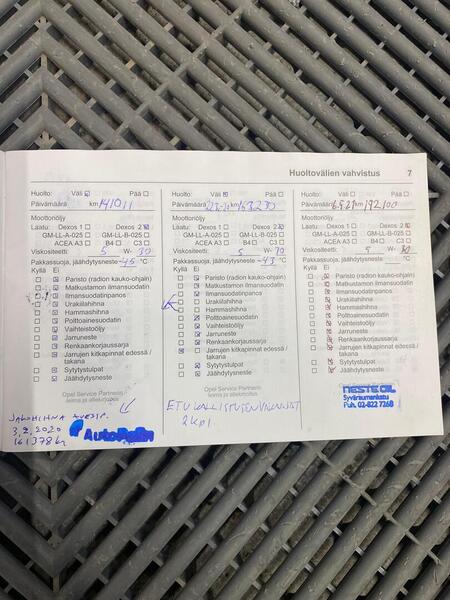 Huoltovälien vahvistus 7
Huolto: Väli Pää
Päivämäärä km 141011
Moottoriöljy
Laatu: Dexos 1 Dexos 2
GM-LL-A-025 GM-LL-B-025
ACEA A3 B4 C3
Viskositeetti 5 W- 30
Pakkassuoja, jäähdytysneste -45 °C
Kyllä Ei
Paristo (radion kauko-ohjain)
Matkustamon ilmansuodatin
Ilmansuodatinpanos
Urakilahihna
Hammashihna
Polttoainesuodatin
Vaihteistoöljy
Jarruneste
Renkaankorjaussarja
Jarrujen kitkapinnat edessä /
takana
Sytytystulpat
Jäähdytysneste
Opel Service Partnerin
leima ja allekirjoitus
JAKOHIHNA
3.2.2020
161378 km
Huolto: Väli Pää
Päivämäärä km 163230
Moottoriöljy
Laatu: Dexos 1 Dexos 2
GM-LL-A-025 GM-LL-B-025
ACEA A3 B4 C3
Viskositeetti 5 W-
Pakkassuoja, jäähdytysneste -43 °C
Kyllä Ei
Paristo (radion kauko-ohjain)
Matkustamon ilmansuodatin
Ilmansuodatinpanos
Urakilahihna
Hammashihna
Polttoainesuodatin
Vaihteistoöljy
Jarruneste
Renkaankorjaussarja
Jarrujen kitkapinnat edessä /
takana
Sytytystulpat
Jäähdytysneste
Opel Service Partnerin
leima ja allekirjoitus
2 kpl
Huolto: Väli Pää
Päivämäärä km 192100
Moottoriöljy
Laatu: Dexos 1 Dexos 2
GM-LL-A-025 GM-LL-B-025
ACEA A3 B4 C3
Viskositeetti 5 W-
Pakkassuoja, jäähdytysneste °C
Kyllä Ei
Paristo (radion kauko-ohjain)
Matkustamon ilmansuodatin
Ilmansuodatinpanos
Urakilahihna
Hammashihna
Polttoainesuodatin
Vaihteistoöljy
Jarruneste
Renkaankorjaussarja
Jarrujen kitkapinnat edessä /
takana
Sytytystulpat
Jäähdytysneste
NESTE OIL
Syväraumankatu
Puh. 02-822 7268